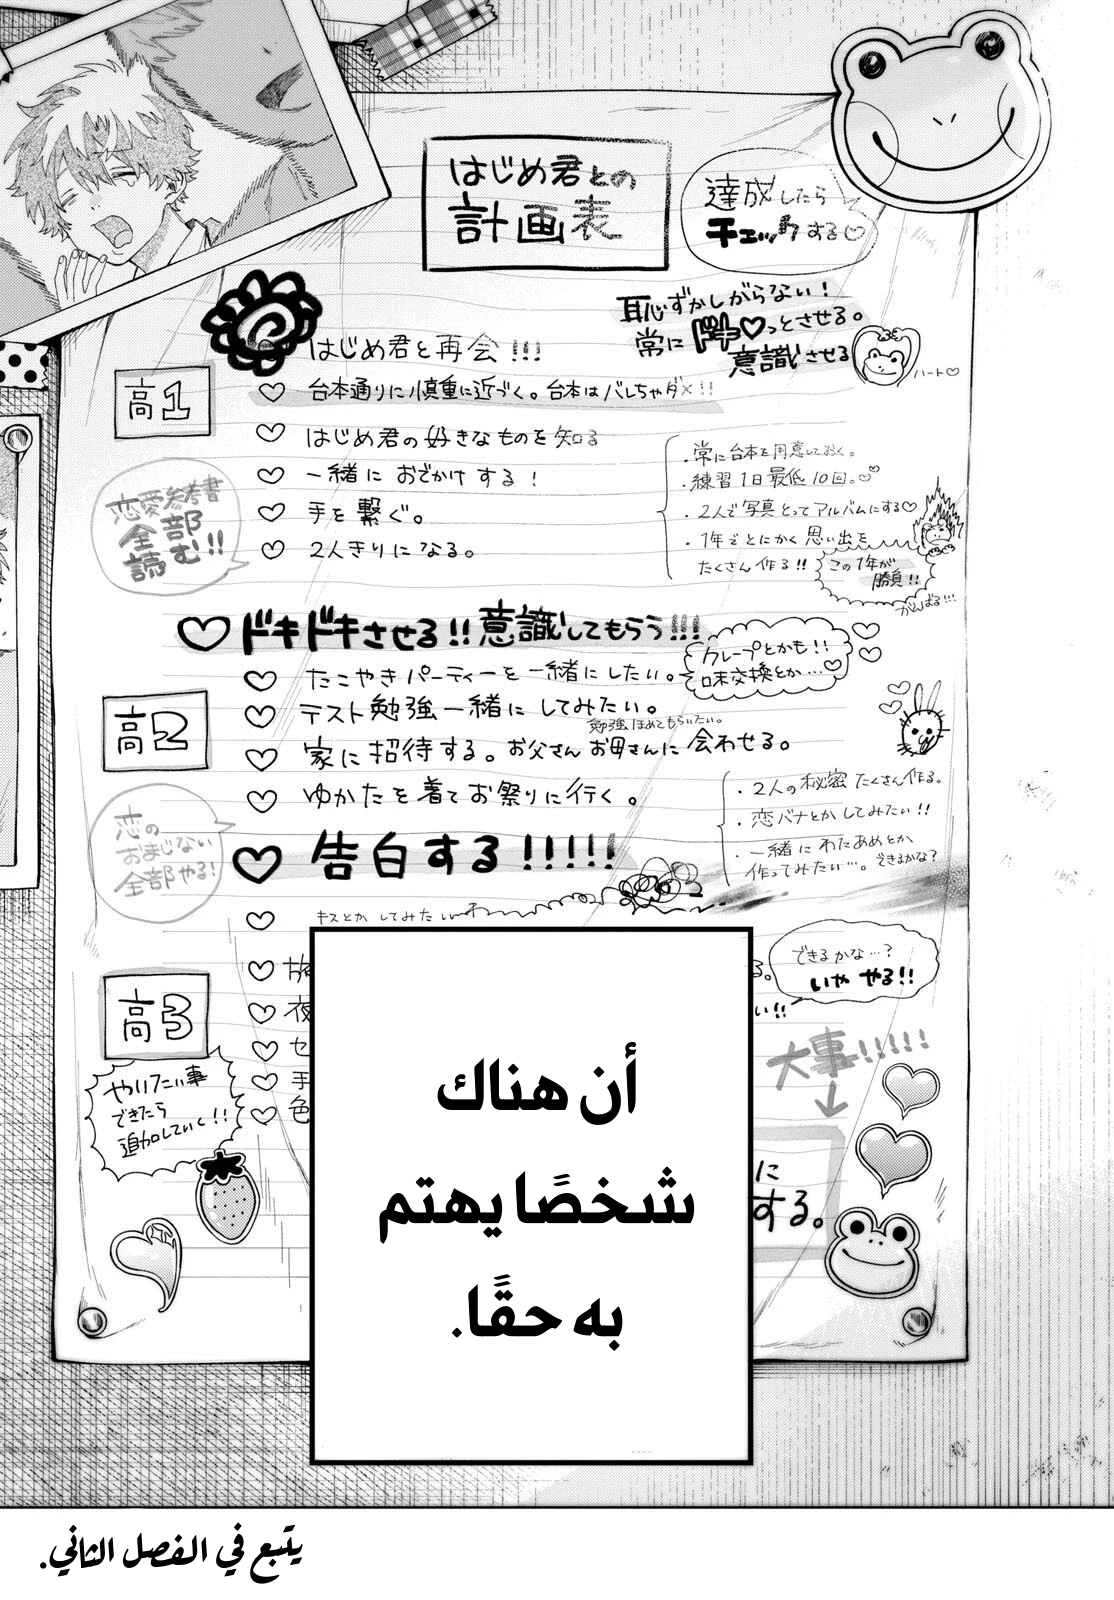 はじめ君との
計画表
達成したら
チェックする♡
恥ずかしがらない!
常にドキ♡っとさせる。
意識させる
ハート♡
はじめ君と再会!!!
高1
♡ 台本通りに慎重に近づく。台本はバレちゃダメ!!
♡ はじめ君の好きなものを知る
♡ 一緒におでかけする!
♡ 手を繋ぐ。
♡ 2人きりになる。
恋愛参考書
全部
読む!!
・常に台本を用意しておく。
・練習1日最低10回。♡
・2人で写真とってアルバムにする♡
・1年でとにかく思い出を
たくさん作る!!
この1年が
勝負!!
がんばる!!!
♡ドキドキさせる!!意識してもらう!!!
クレープとかも!!
味交換とか…♡
高2
♡ たこやきパーティーを一緒にしたい。
♡ テスト勉強一緒にしてみたい。
勉強ほめてもらいたい。
♡ 家に招待する。お父さんお母さんに会わせる。
♡ ゆかたを着てお祭りに行く。
♡ 告白する!!!!!
恋の
おまじない
全部やる!
・2人の秘密たくさん作る。
・恋バナとかしてみたい!!
・一緒にわたあめとか
作ってみたい…。できるかな?
♡ キスとかしてみたい
できるかな…?
いや やる!!
高3
♡
♡ 夜
♡ セ
♡ 手
♡ 色
い!!
る。
やりたい事
できたら
追加していく!!
大事!!!!!
↓
に
する。
أن هناك
شخصًا يهتم
به حقًا.
يتبع في الفصل الثاني.